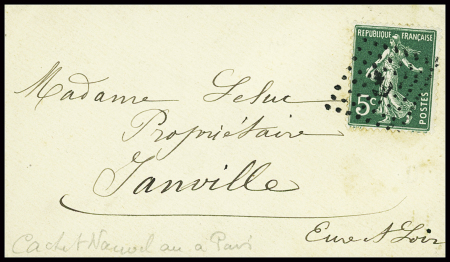 REPUBLIQUE FRANÇAISE
5c
POSTES
Madame Leluc
Propriétaire
Janville
Eure & Loir
Cachet Nouvel an a Paris